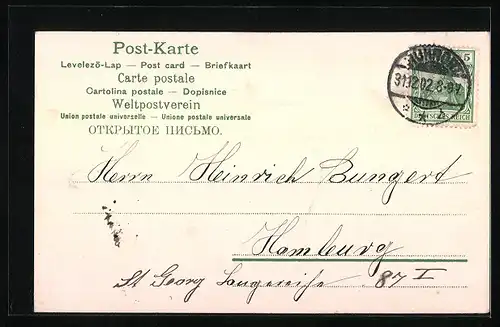 Post-Karte
Levelező-Lap — Post card — Briefkaart
Carte postale
Cartolina postale — Dopisnice
Weltpostverein
Union postale universelle — Unione postale universale
ОТКРЫТОЕ ПИСЬМО.
5
31.12.02. 8-9V.
DEUTSCHES REICH
Herrn Heinrich Bungert
Hamburg
St Georg Langereihe 87 I